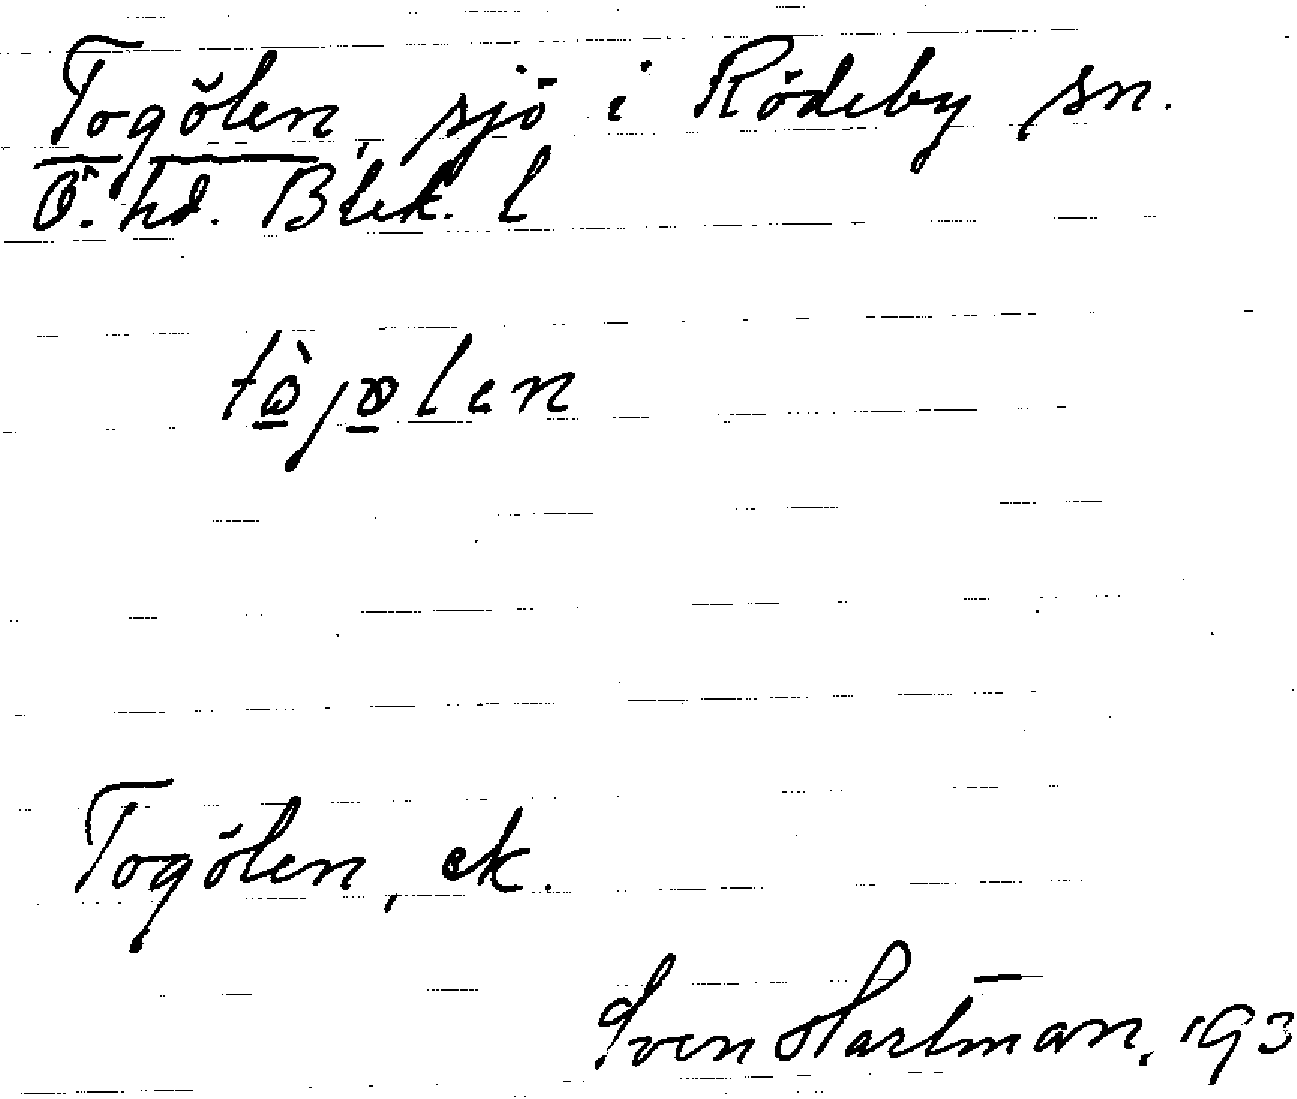 Togölen, sjö i Rödeby sn.
Ö. hd. Blek. l
tò̲jø̲len
Togölen, ek.
Sven Hartman, 193